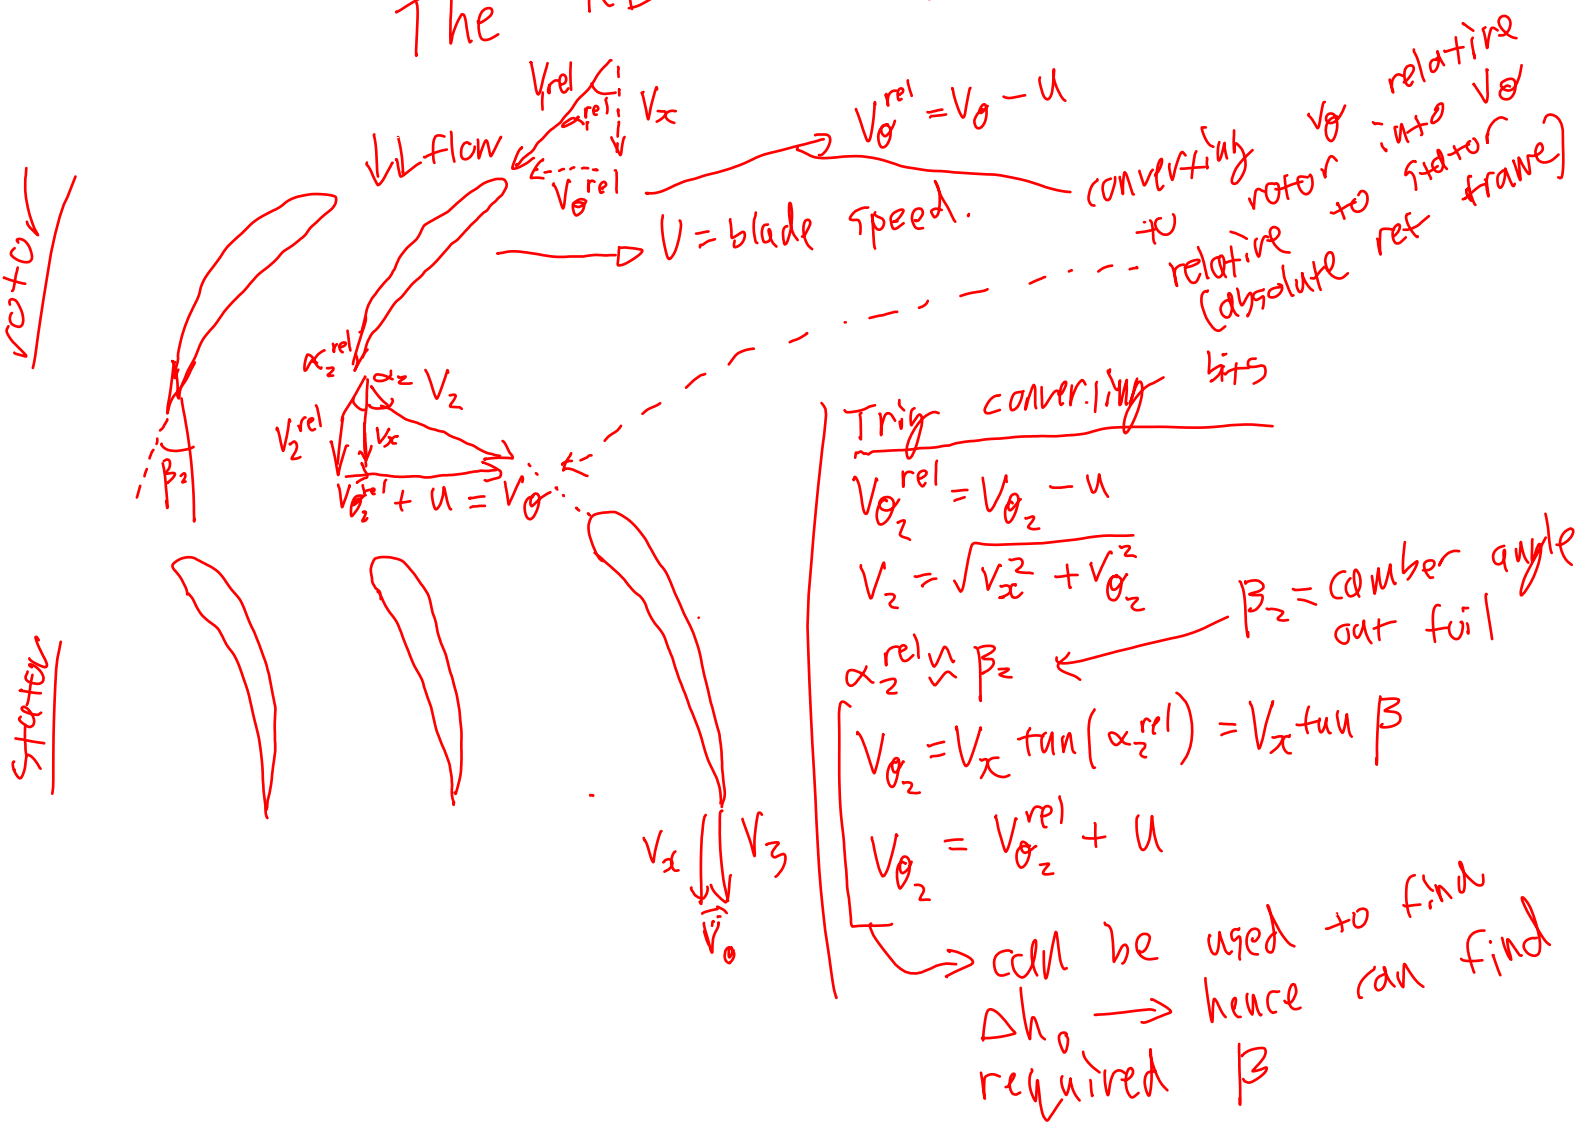 The
V₁rel
α₁rel
Vₓ
Vθrel
flow
Vθrel = Vθ - U
U = blade speed.
converting Vθ relative
to rotor into Vθ
relative to stator
(absolute ref frame)
rotor
α₂rel
α₂
V₂
V₂rel
Vₓ
β₂
Vθ₂rel + U = Vθ
stator
Vₓ
V₃
Vθ
Trig converting bits
Vθ₂rel = Vθ₂ - U
V₂ = √(Vₓ² + Vθ₂²)
α₂rel ≈ β₂
β₂ = camber angle
out foil
Vθ₂ = Vₓ tan(α₂rel) = Vₓ tan β
Vθ₂ = Vθ₂rel + U
can be used to find
Δh₀ → hence can find
required β